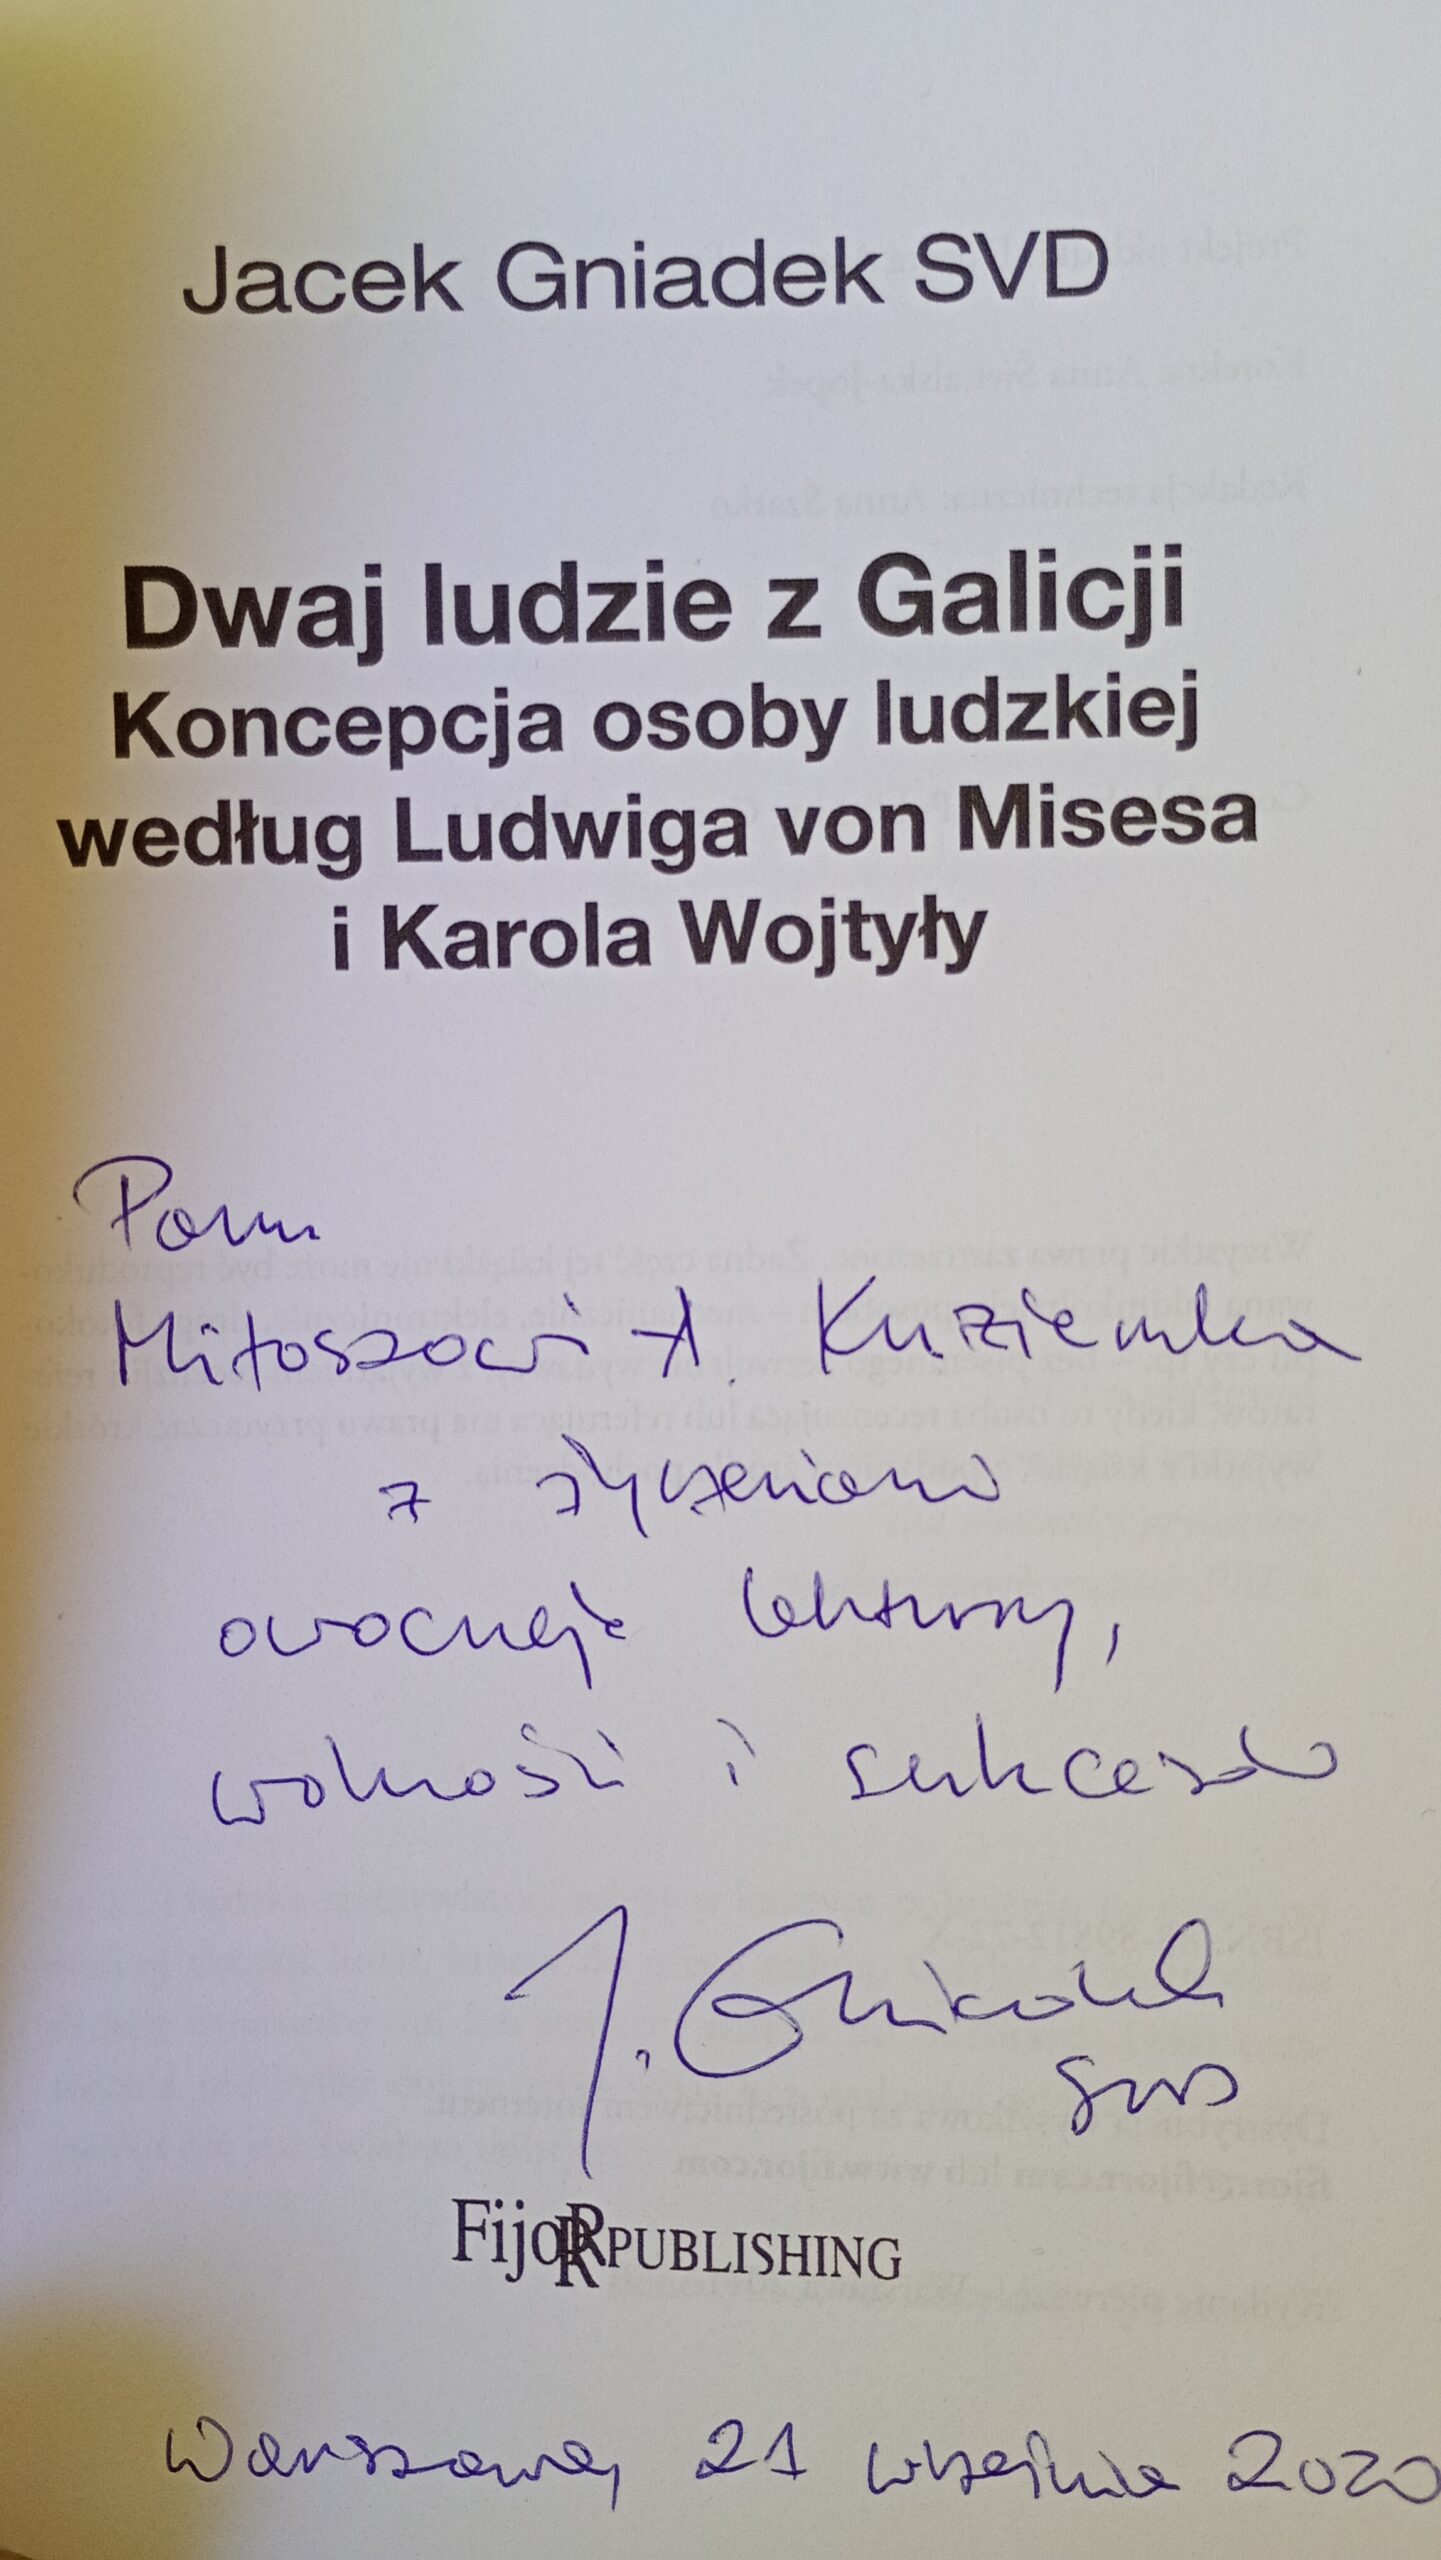 Jacek Gniadek SVD
Dwaj ludzie z Galicji
Koncepcja osoby ludzkiej
według Ludwiga von Misesa
i Karola Wojtyły
Panu
Miłoszowi A. Kuziemka
z życzeniami
owocnej lektury,
wolności i sukcesów
J. Gniadek
SVD
Fijorr PUBLISHING
Warszawa, 21 września 2020